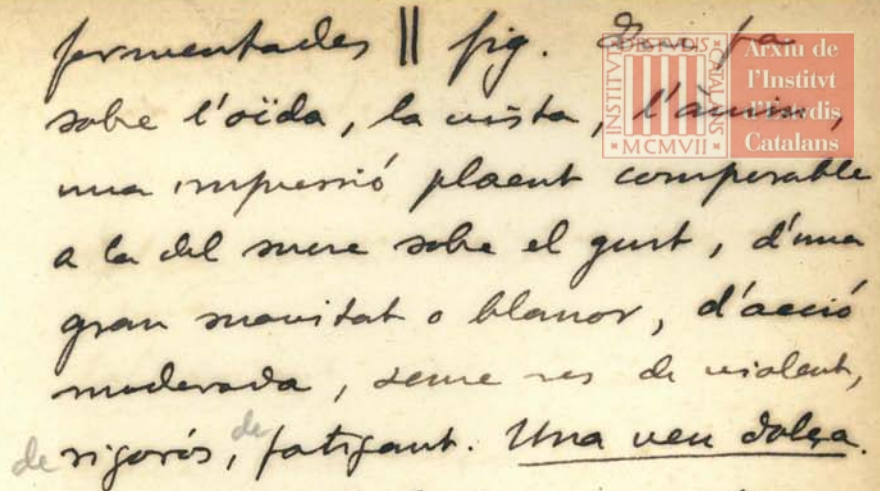 fermentades || fig. Que fa
sobre l'oïda, la vista, l'ànim,
una impressió plaent comparable
a la del sucre sobre el gust, d'una
gran suavitat o blanor, d'acció
moderada, sense res de violent,
de rigorós, de fatigant. Una veu dolça.
INSTITVT D'ESTVDIS CATALANS
MCMVII
Arxiu de
l'Institvt
d'Estvdis
Catalans